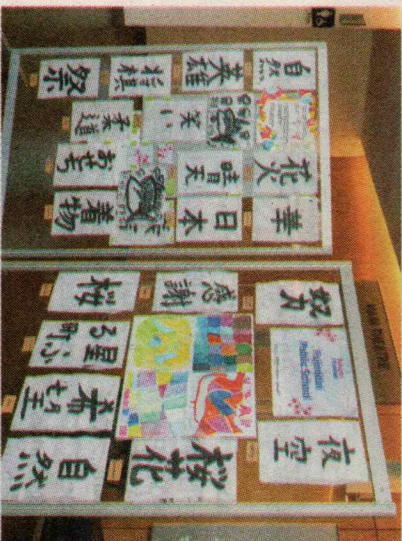 自然
英雄
将棋
祭
笑い
柔道
花火
晴天
おせち
華
日本
着物
努力
感謝
桜
Public School
星ふる町
希望
夜空
桜花
自然